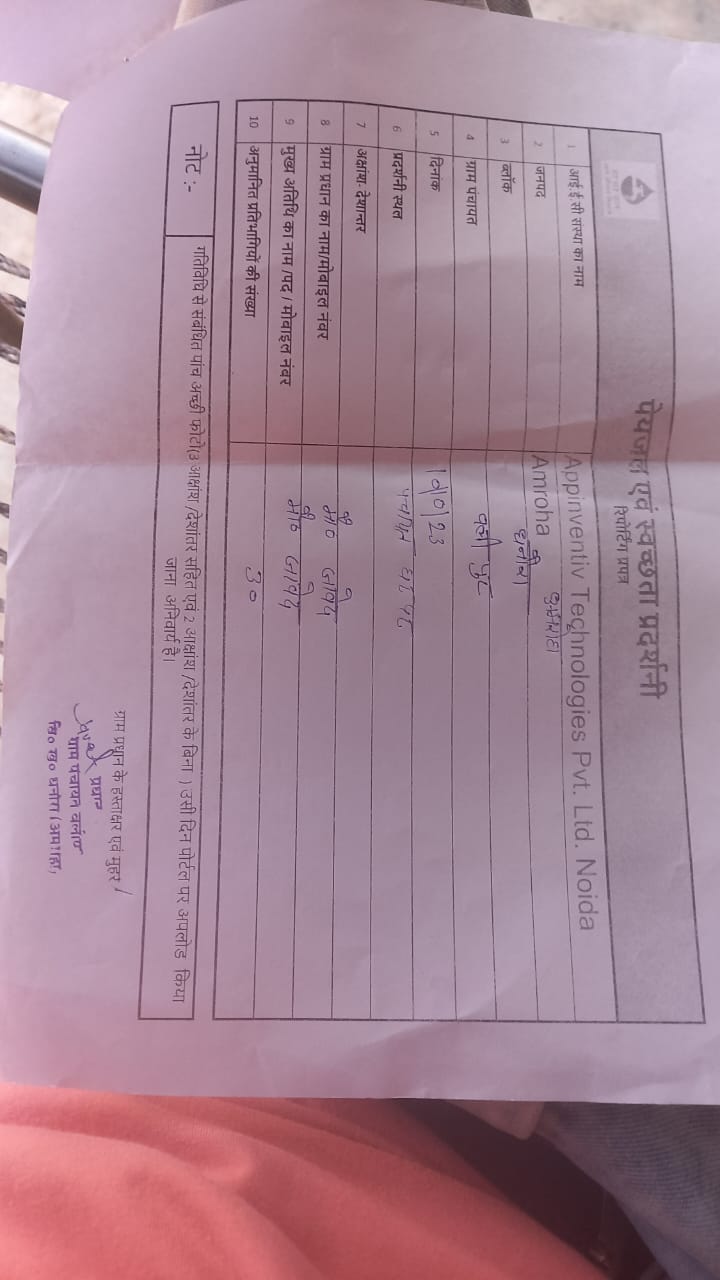 पेयजल एवं स्वच्छता प्रदर्शनी
रिपोर्टिंग प्रपत्र
1 आई.ई.सी संस्था का नाम Appinventiv Technologies Pvt. Ltd. Noida
2 जनपद Amroha अमरोहा
3 ब्लॉक धनौरा
4 ग्राम पंचायत
5 दिनांक
6 प्रदर्शनी स्थल पंचायत घर पर
7 अक्षांश- देशान्तर
8 ग्राम प्रधान का नाम/मोबाइल नंबर श्री मो०
9 मुख्य अतिथि का नाम /पद / मोबाइल नंबर श्री मो०
10 अनुमानित प्रतिभागियों की संख्या 30
नोट :- गतिविधि से संबंधित पांच अच्छी फोटो(3 आक्षांश /देशांतर सहित एवं 2 आक्षांश /देशांतर के बिना ) उसी दिन पोर्टल पर अपलोड किया
जाना अनिवार्य है।
ग्राम प्रधान के हस्ताक्षर एवं मुहर /
प्रधान
ग्राम पंचायत
वि० ख० धनौरा (अमरोहा)